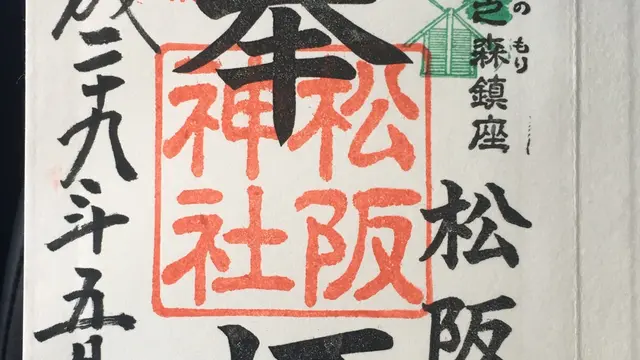 の もり
之森鎮座
松阪
奉
松阪
神社
成二十九年五月